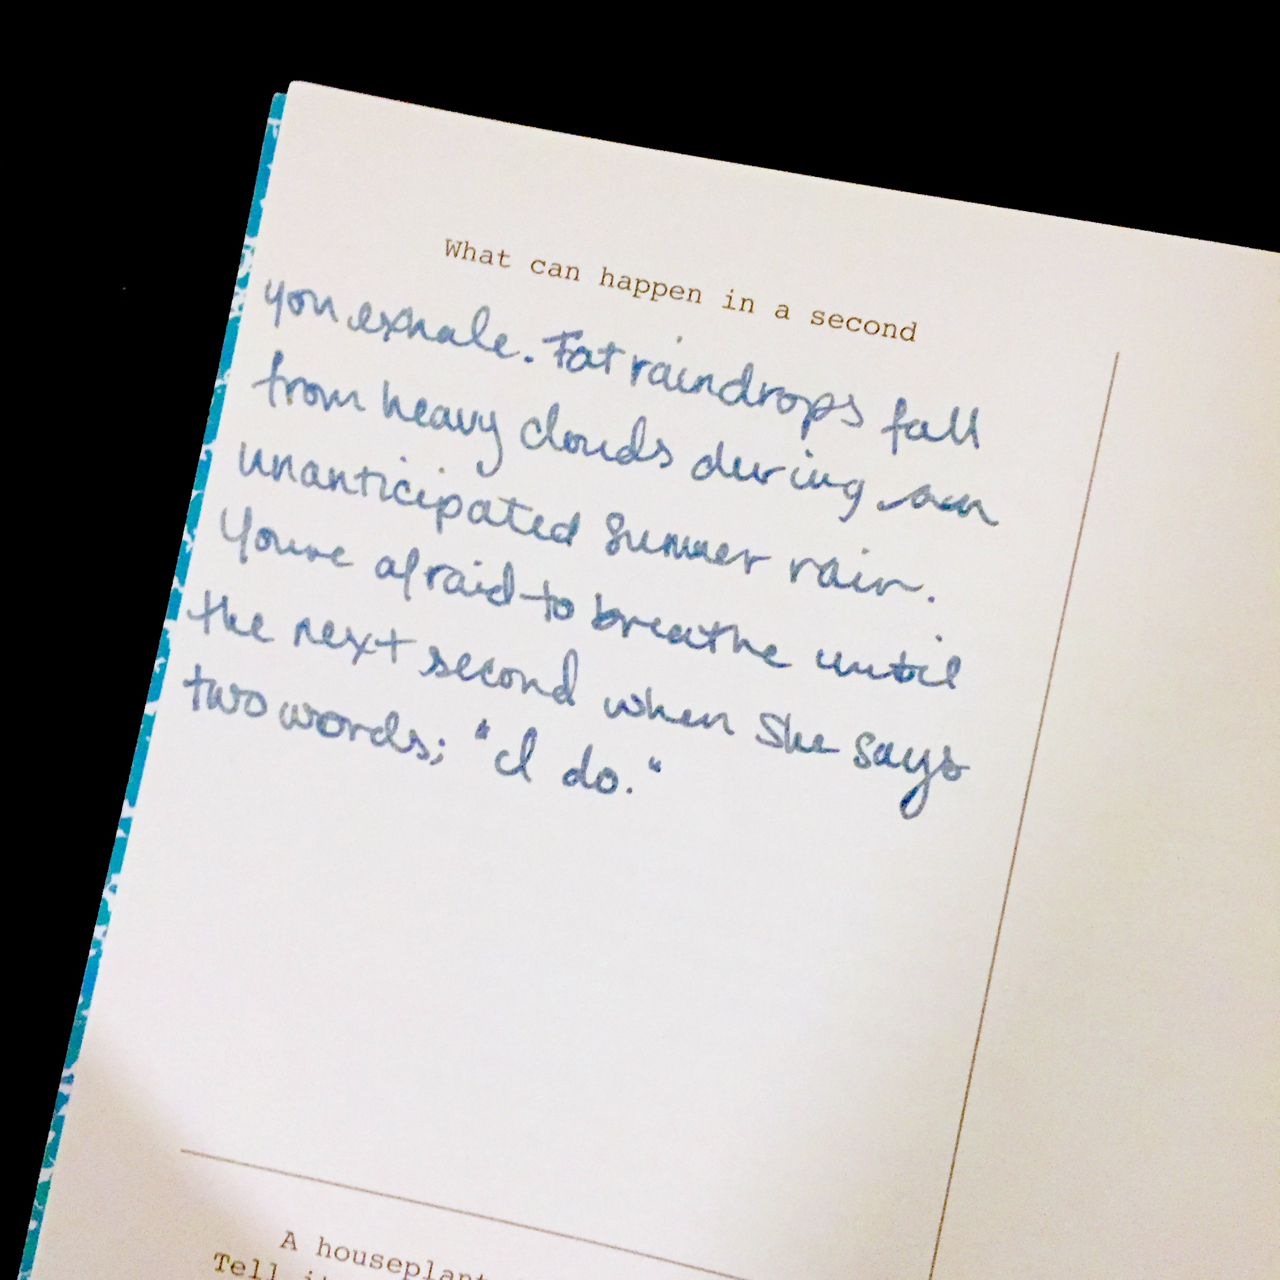 What can happen in a second
you exhale. Fat raindrops fall
from heavy clouds during an
unanticipated summer rain.
You're afraid to breathe until
the next second when she says
two words; "I do."
A houseplant
Tell